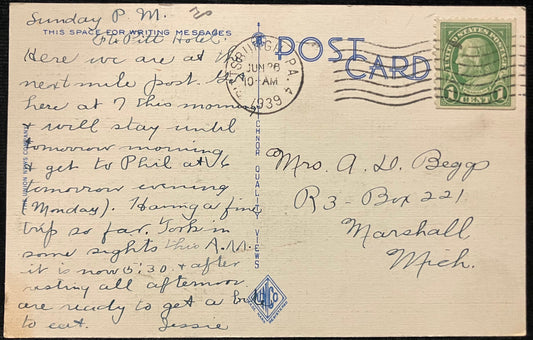 Sunday P.M.
THIS SPACE FOR WRITING MESSAGES
Ft Pitt Hotel.
Here we are at the
next mile post. Got
here at 7 this morning
& will stay until
tomorrow morning
& get to Phil at 6
tomorrow evening
(Monday). Having a fine
trip so far. Took in
some sights this A.M.
it is now 5:30 & after
resting all afternoon
are ready to get a bite
to eat. Jessie
THE UNION NEWS COMPANY
TICHNOR QUALITY VIEWS
POST
CARD
PITTSBURGH, PA. 4
JUN 26
10 AM
1939
UNITED STATES POSTAGE
1 CENT 1
Mrs. A. D. Begg
R 3 - Box 221
Marshall
Mich.